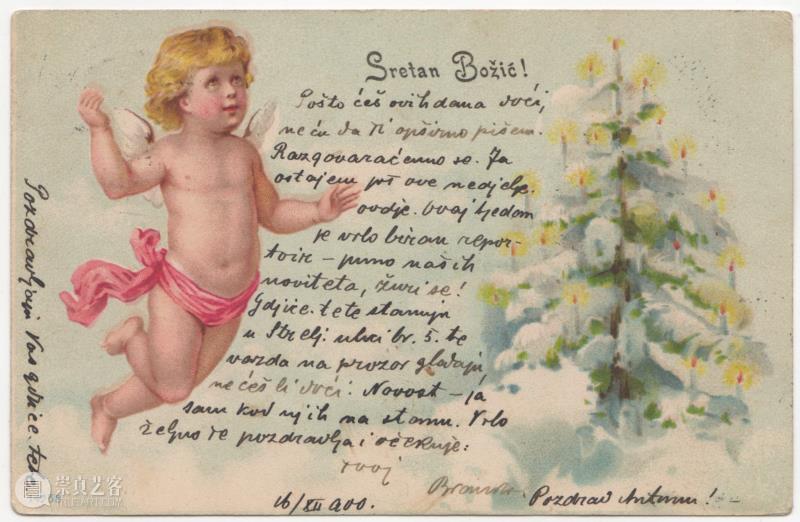 Sretan Božić!
Pošto ćeš ovih dana doći,
neću da Ti opširno pišem.
Razgovaraćemo se. Ja
ostajem još ove nedjelje
ovdje. Ovaj tjedan
je vrlo biran reper-
toir – puno naših
noviteta, žuri se!
Gdjice tete stanuju
u Strelj. ulici br. 5. te
vazda na prozor gledaju
nećeš li doći. Novost – ja
sam kod njih na stanu. Vrlo
željno Te pozdravlja i očekuje:
tvoj
16/XII 900.
Pozdrav
Pozdravljaju Vas gdjice. tete
崇真艺客